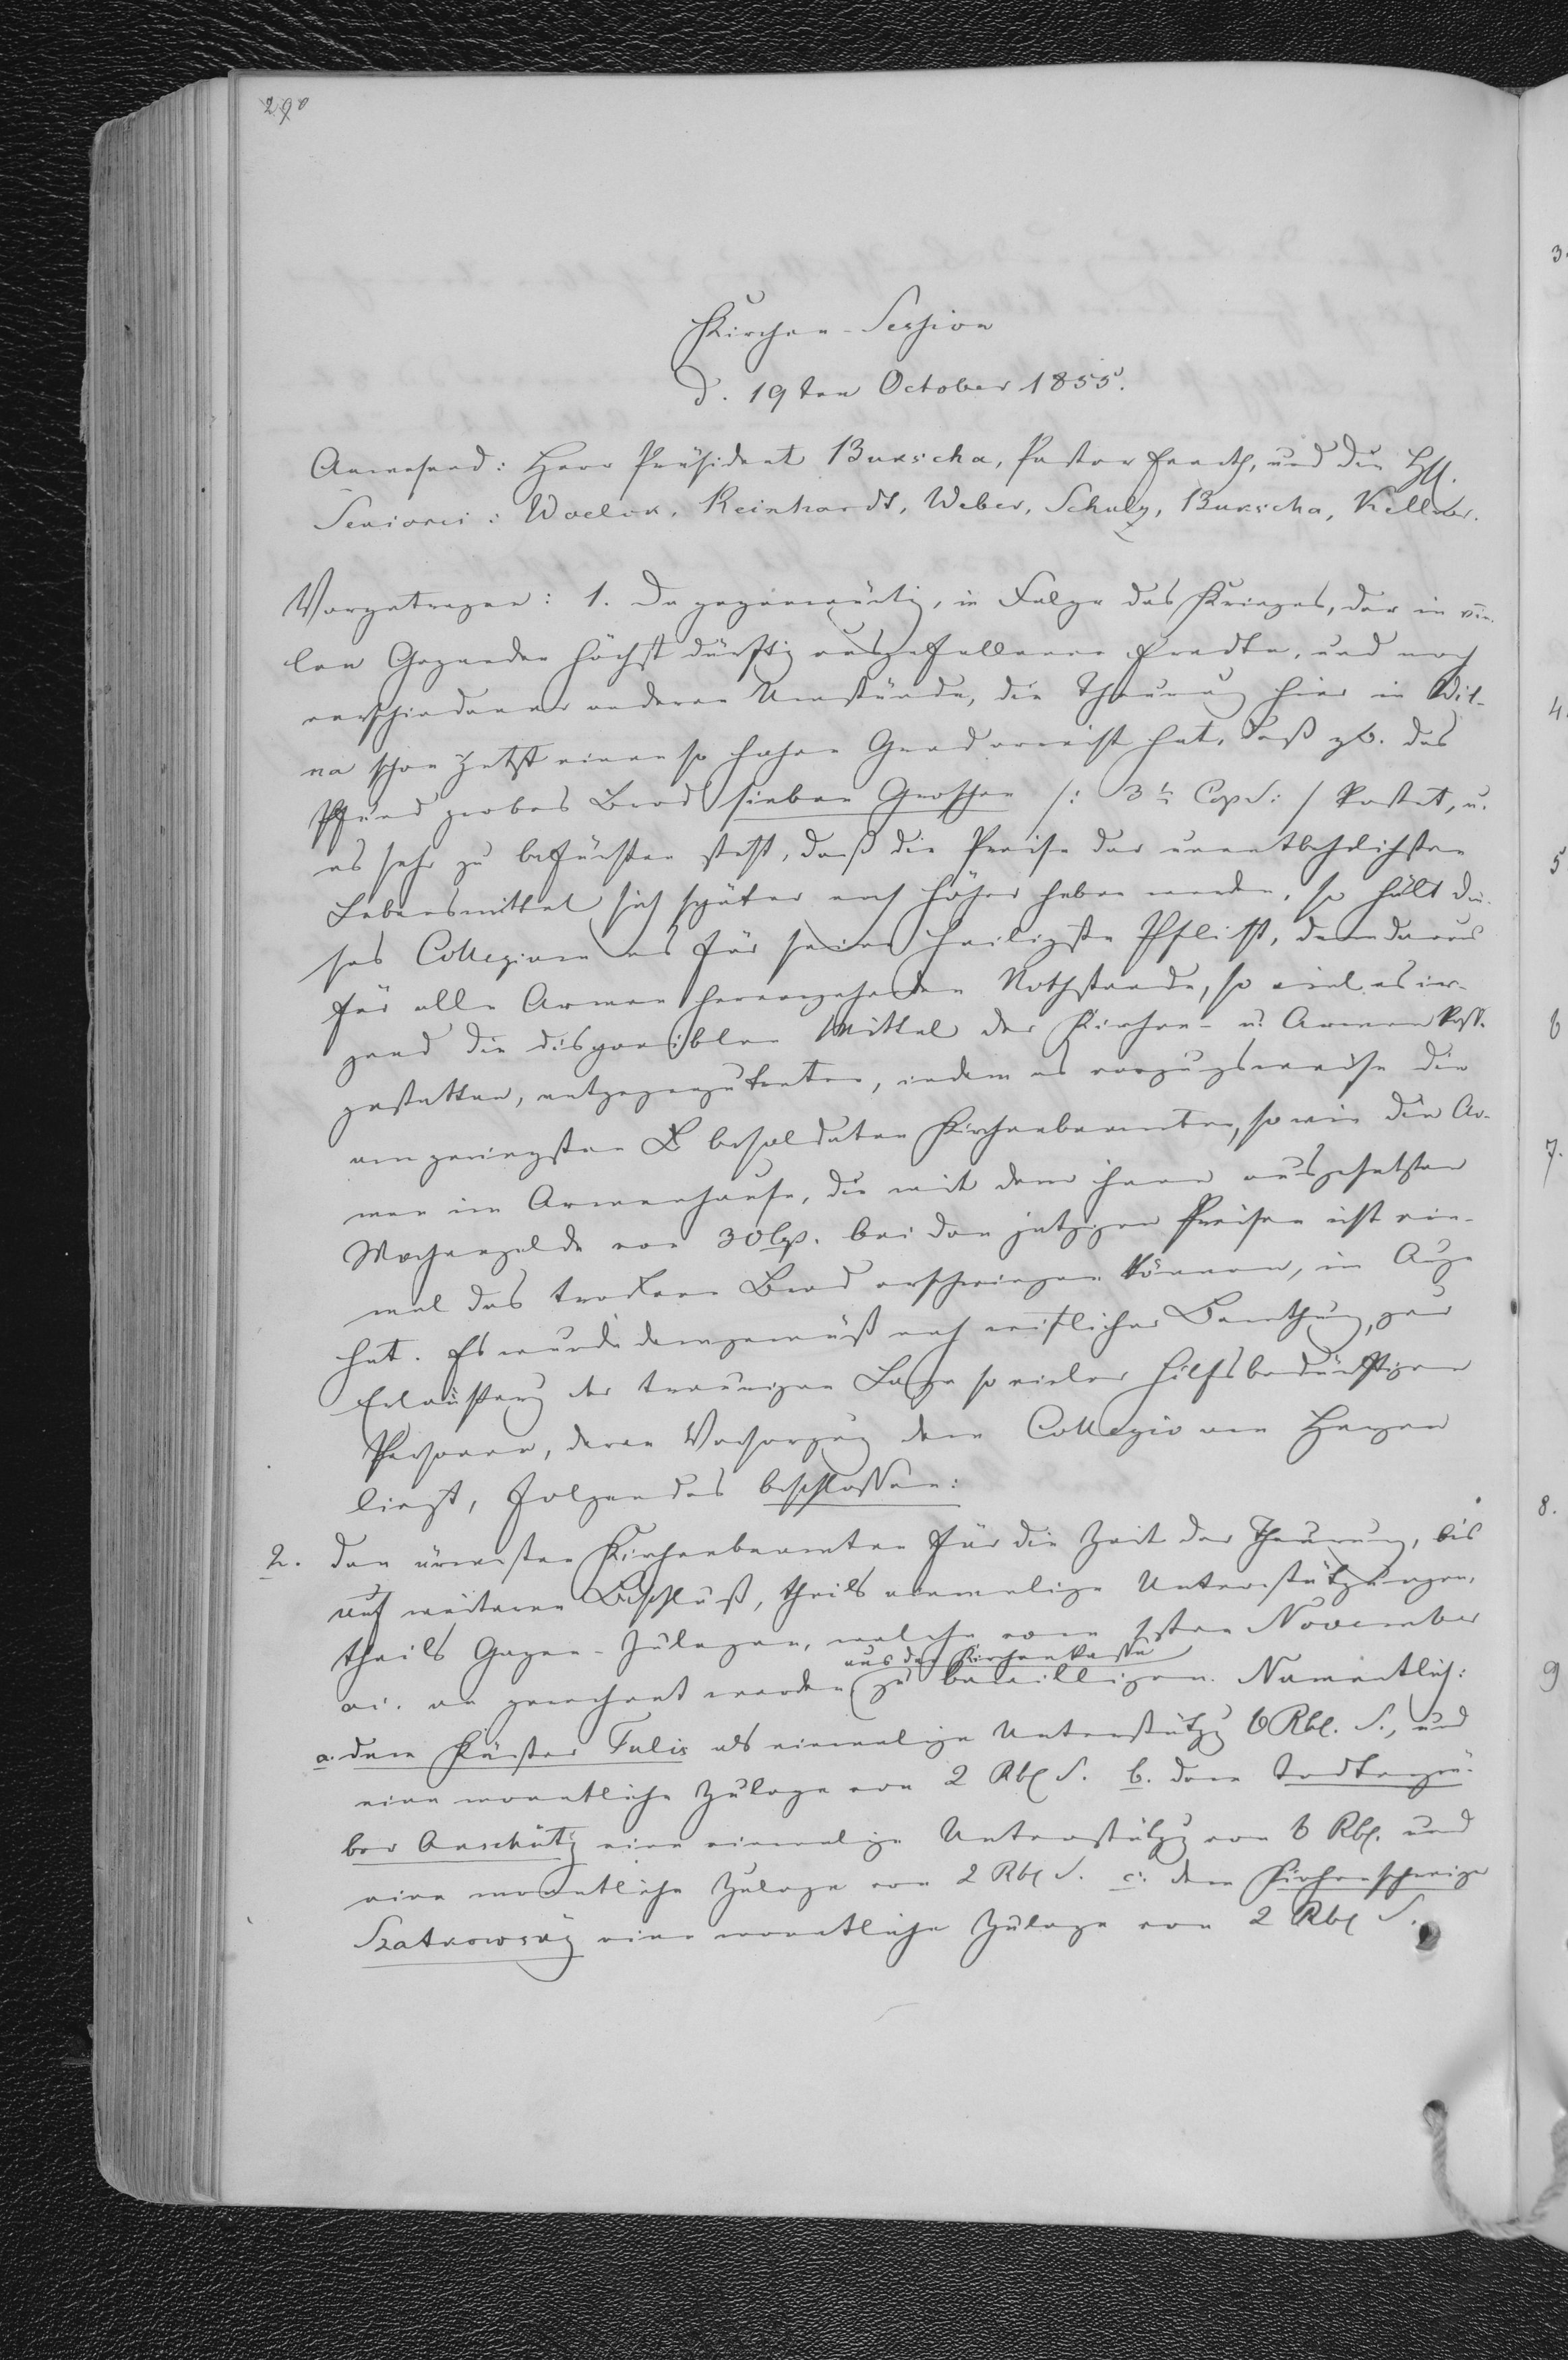 290
Kirchen-Session
d. 19ten October 1855.
Anwesend: Herr Präsident Burscha, Pastor und die HH.
Seniores: Woelck, Reinhardt, Weber, Schulz, Burscha, Kellner.
Vorgetragen: 1. Da gegenwärtig, in Folge des Krieges, der in vie-
len Gegenden höchst dürftig ausgefallenen Erndte, und noch
verschiedener anderer Umstände, die Theurung hier in Wil-
na schon jetzt einen so hohen Grad erreicht hat, daß zb. das
Pfund grobes Brod sieben Groschen /: 3½ Cop S: / kostet, u.
es sehr zu befürchten steht, daß die Preise der unentbehrlichsten
Lebensmittel sich später noch höher heben werden, so hält die-
ses Collegium es für seine heiligste Pflicht, dem daraus
für alle Armen hervorgehenden Nothstande, so viel es ir-
gend die disponiblen Mittel der Kirchen- u. Armenkasse
gestatten, entgegenzutreten, indem es vorzugsweise die
am geringsten besoldeten Kirchenbeamten, so wie die Ar-
men im Armenhause, die mit dem ihnen ausgesetzten
Wochengelde von 30 Cop. bei den jetzigen Preisen nicht ein-
mal das trockene Brod erschwingen können, im Auge
hat. Es wurde demgemäß nach reiflicher Berathung, zur
Erleichterung der traurigen Lage so vieler hilfsbedürftigen
Personen, deren Versorgung dem Collegio am Herzen
liegt, Folgendes beschlossen:
2. den ärmsten Kirchenbeamten für die Zeit der Theurung, bis
auf weiteren Beschluß, theils einmalige Unterstützungen,
theils Gagen-Zulagen, welche vom 1sten November
aus der Kirchenkasse
an gerechnet werden zu bewilligen. Namentlich:
a. dem Küster Fulis als einmalige Unterstützg 6 Rbl. S., und
eine monatliche Zulage von 2 Rbl S. b. dem Todtengrä-
ber Anschütz eine einmalige Unterstützg von 6 Rbl. und
eine monatliche Zulage von 2 Rbl S. c. dem Kirchenschweizer
Szatkowsky eine monatliche Zulage von 2 Rbl S.
3.
4.
5
6
7.
8.
9